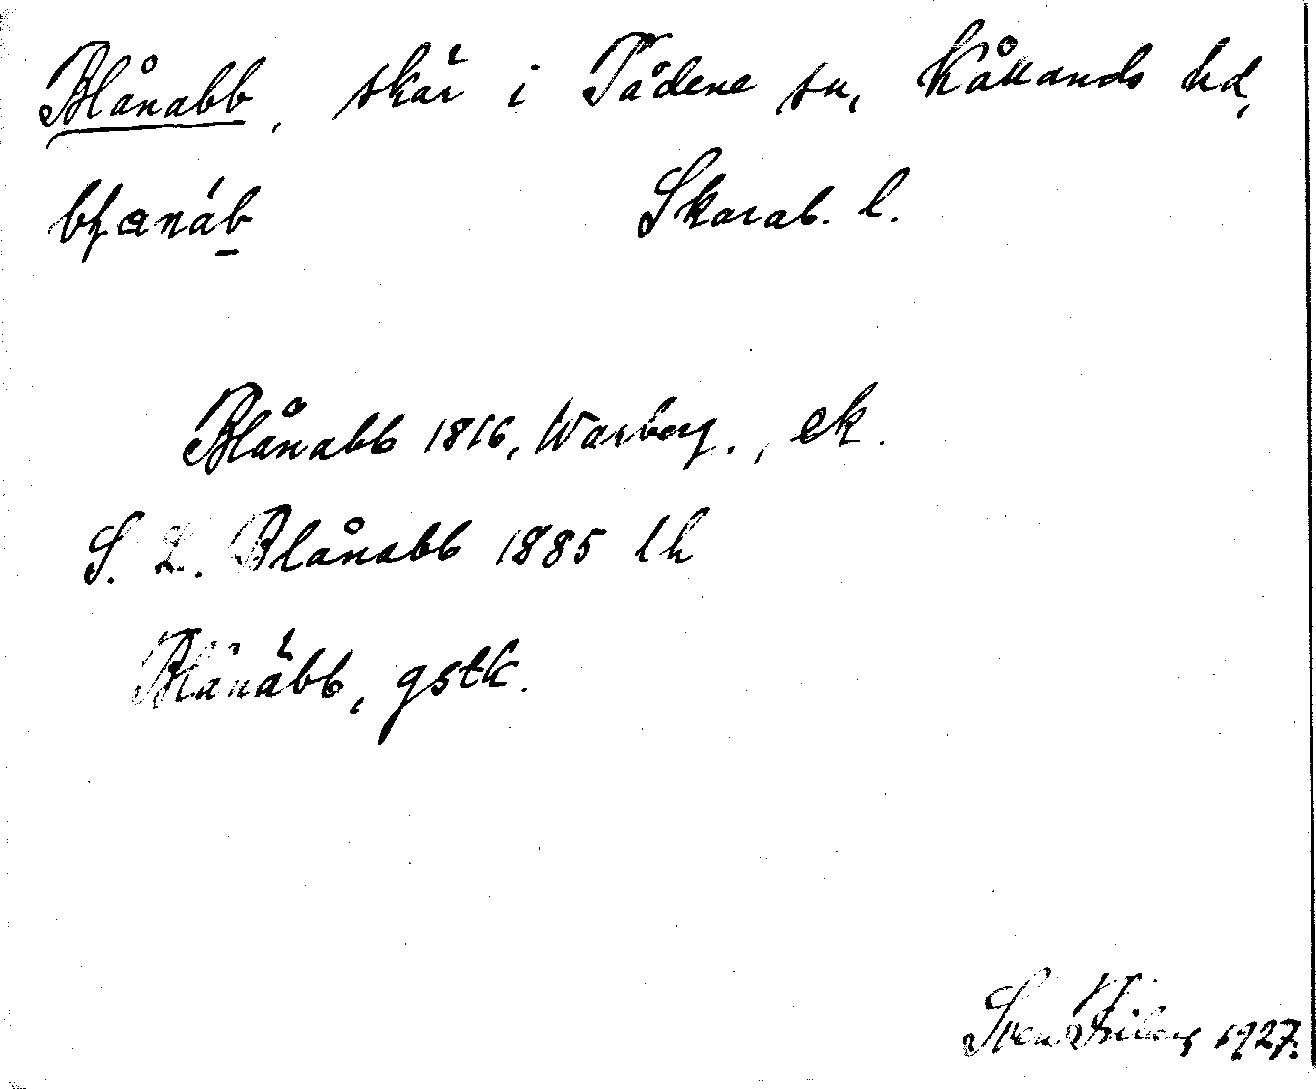 Blånabb, skär i Tådene sn, Kållands hd,
Skarab. l.
Blånabb 1816, Warberg., ek.
S. L. Blånabb 1885 lh
Blånäbb, gstk.
Sven Friberg 1927.